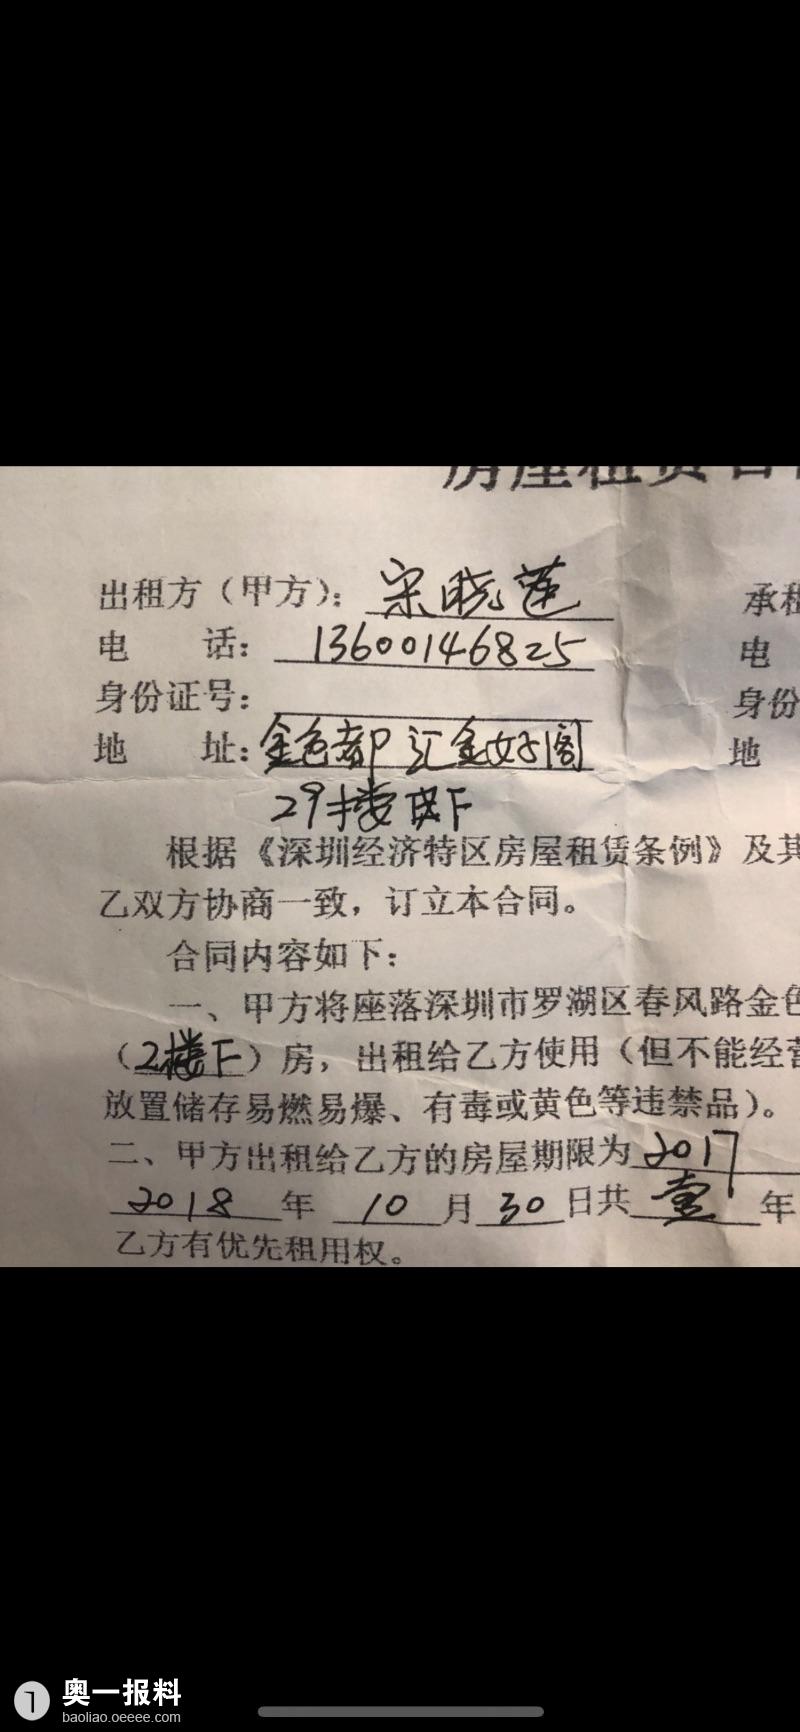 房屋租赁合同
出租方（甲方）：宋晓莲 承租
电 话：13600146825 电
身份证号： 身份
地 址：金色都汇金好阁 地
29楼F
根据《深圳经济特区房屋租赁条例》及其
乙双方协商一致，订立本合同。
合同内容如下：
一、甲方将座落深圳市罗湖区春风路金色
（2楼F）房，出租给乙方使用（但不能经营
放置储存易燃易爆、有毒或黄色等违禁品）。
二、甲方出租给乙方的房屋期限为2017
2018年10月30日共壹年
乙方有优先租用权。
奥一报料
baoliao.oeeee.com